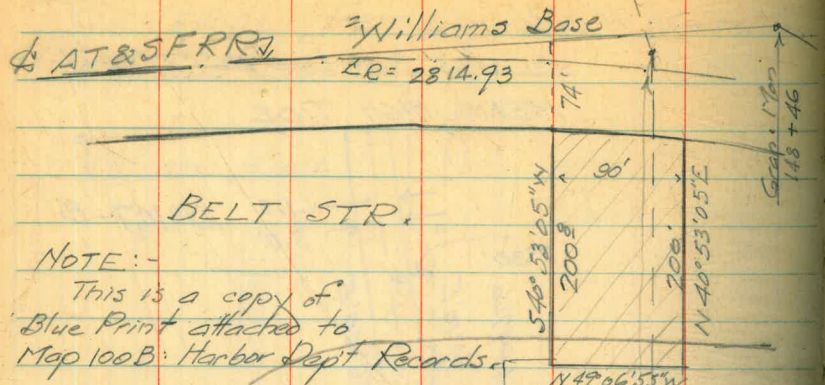 Williams Base
℄ AT&SFRR
℄R= 2814.93
74'
Gran. Mon
148+46
90'
BELT STR.
S40°53'05"W
200.8
200'
N40°53'05"E
NOTE:-
This is a copy of
Blue Print attached to
Map 100B: Harbor Dep't Records.
N49°06'55"W